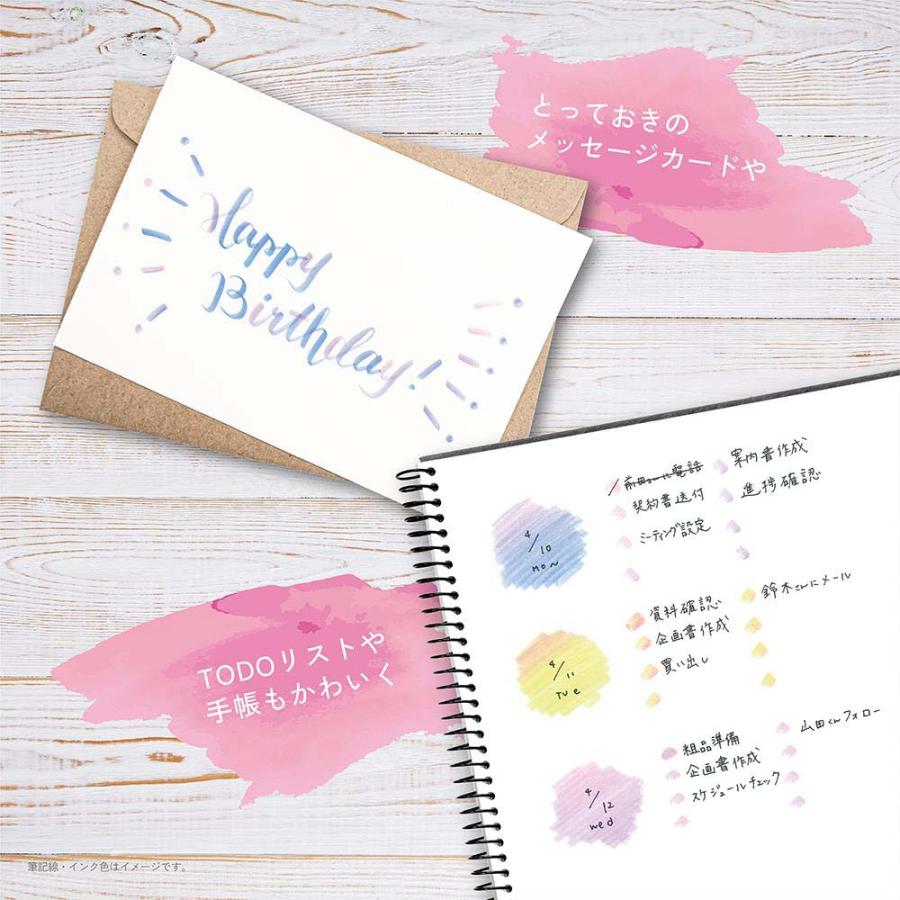 とっておきの
メッセージカードや
Happy
Birthday!
4/10
Mon
前田さんに電話
契約書送付
ミーティング設定
案内書作成
進捗確認
4/11
Tue
資料確認
企画書作成
買い出し
鈴木さんにメール
4/12
wed
粗品準備
企画書作成
スケジュールチェック
山田くんフォロー
TODOリストや
手帳もかわいく
筆記線・インク色はイメージです。